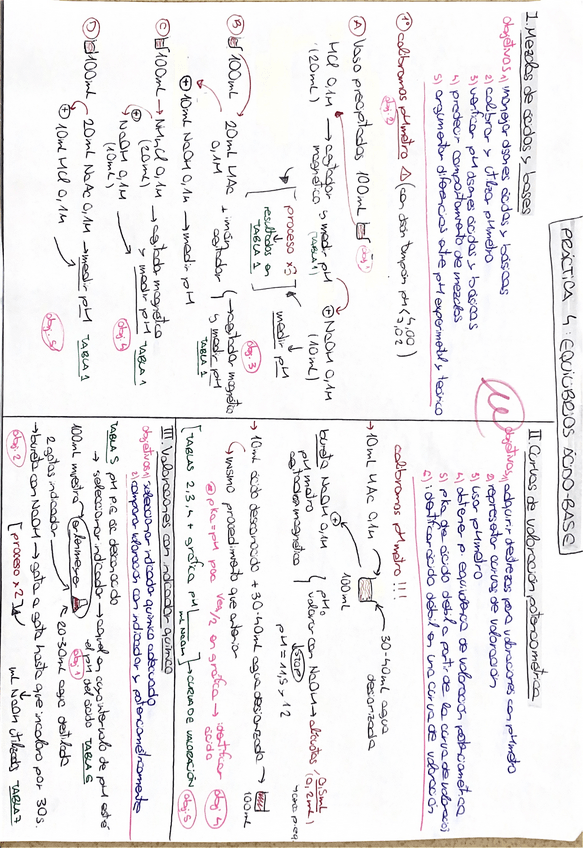 PRÁCTICA 4: EQUILIBRIOS ÁCIDO-BASE
I. Mezclas de ácidos y bases
objetivos 1) manejar disnes ácidas y básicas
2) calibrar y utilizar pHmetro
3) verificar pH disnes ácidas y básicas
4) predecir comportamiento de mezclas
5) argumentar diferencias entre pH experimental y teórico
1º calibramos pHmetro (con disn tampón pH
obj. 2
A Vaso precipitados 100mL obj. 1
HCl 0,1M → agitador magnético y medir pH + NaOH 0,1M
(20mL) (TABLA 1) (10mL)
[proceso x3 resultados en TABLA 1] ← medir pH
obj. 3
B 100mL 20mL HAc 0,1M + imán agitador → agitador magnético y medir pH
TABLA 1
+ 10mL NaOH 0,1M → medir pH
C 100mL → NH4Cl 0,1M → agitador magnético y medir pH TABLA 1
(20mL)
+ NaOH 0,1M
(10mL)
obj. 4
D 100mL 20mL NaAc 0,1M → medir pH TABLA 1
+ 10mL HCl 0,1M
obj. 5
II Curvas de valoración potenciométrica
objetivos 1) adquirir destrezas para valoraciones con pHmetro
2) representar curvas de valoración
3) usar pHmetro
4) obtener p. equivalencia de valoración potenciométrica
5) pKa de ácido débil a partir de la curva de valoración
6) identificar ácido débil en una curva de valoración
calibramos pHmetro !!!
→ 10mL HAc 0,1M → 100mL ← 30-40mL agua desionizada
bureta NaOH 0,1M +
pHmetro
agitador magnético
pH0
valorar con NaOH → alícuotas 0,5mL
(0,2mL)
STOP
pH = 11,5 > 12
→ 10mL ácido desconocido + 30-40mL agua desionizada → 100mL
mismo procedimiento que anterior
pKa = pH para Veq/2 en gráfica → identificar ácido
obj. 4
[TABLAS 2,3,4 + gráfica pH / mL NaOH] CURVA DE VALORACIÓN obj. 5
III. Valoraciones con indicador químico
objetivos 1) seleccionar indicador químico adecuado
2) comparar valoración con indicador y potenciométricamente
TABLA 5 pH p.e. ac desconocido
→ seleccionar indicador → aquel en cuyo intervalo de pH esté el pH del ácido TABLA 6
obj. 1
100mL muestra erlenmeyer
2 gotas indicador ≈ 20-30mL agua destilada
→ bureta con NaOH → gota a gota hasta que incoloro por 30s.
obj. 2 [proceso x2] mL NaOH utilizados TABLA 7